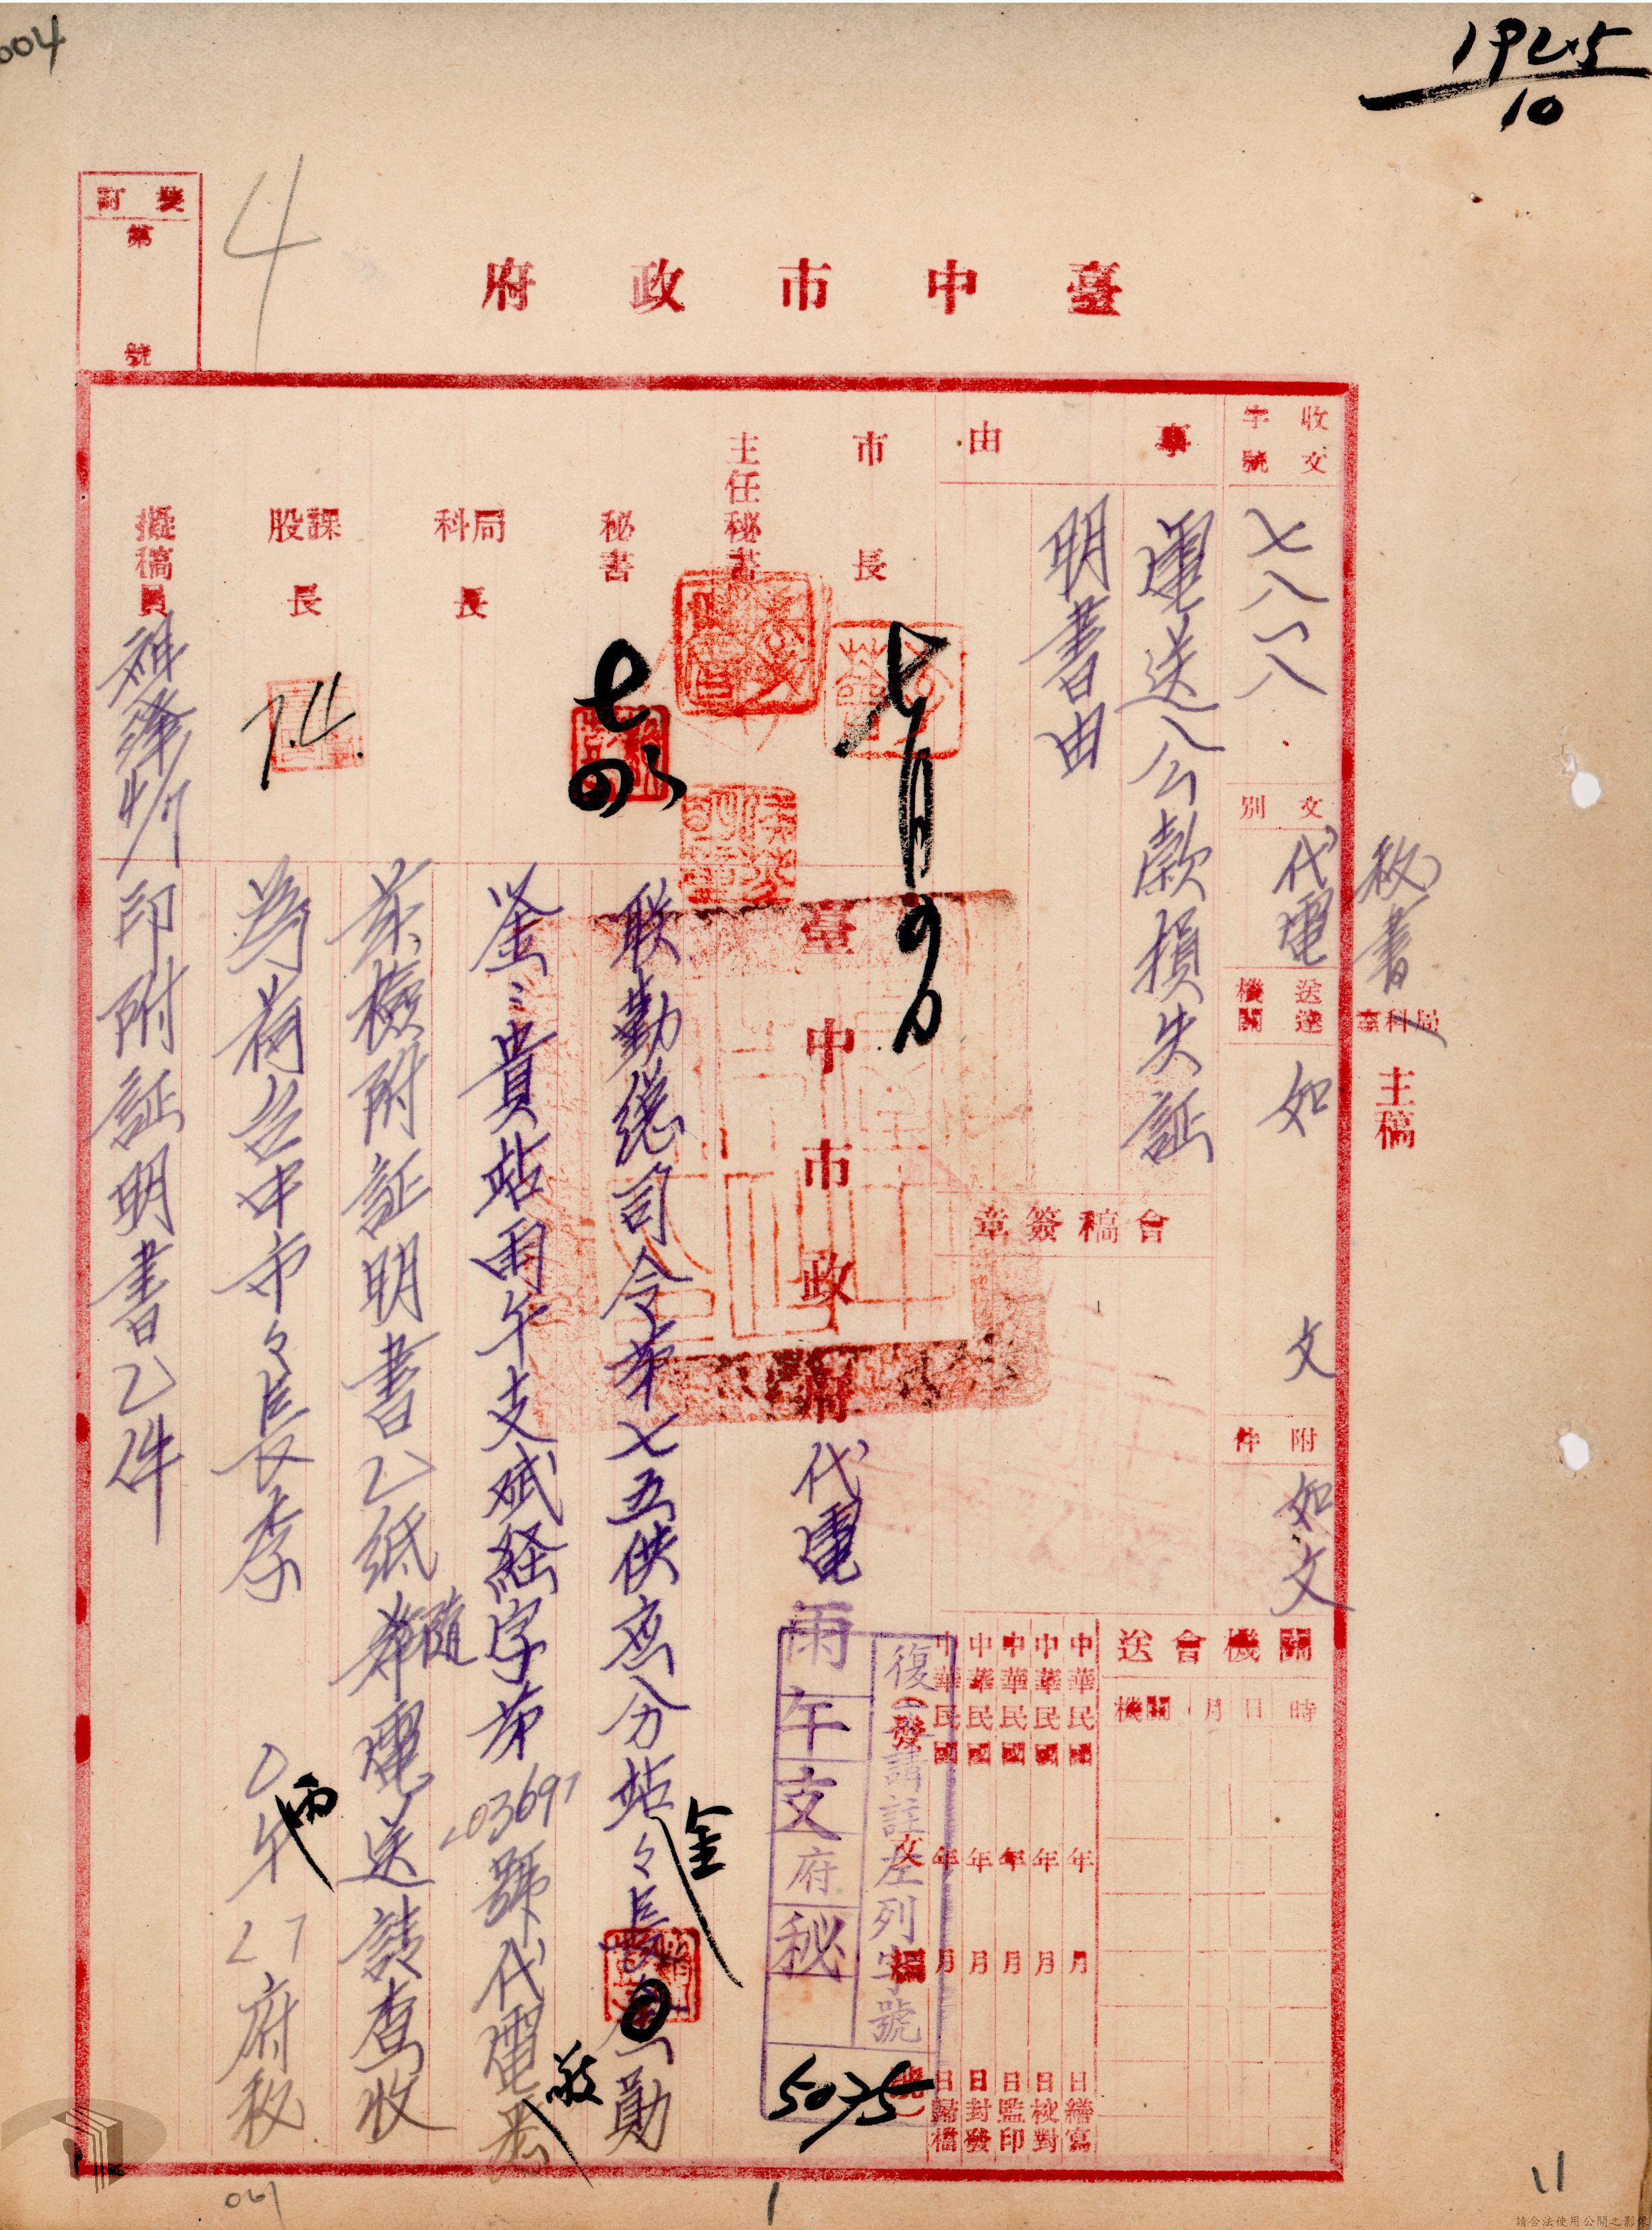 004
1925
10
裝訂
第
號
4
臺中市政府
收文
字號
七八一八
文別
代電
送達
機關
如
文
附件
如文
秘書
局科室
主稿
事由
電送公款損失証
明書由
會稿簽章
關機會送
時日月機關
中華民國 年 月 日繕寫
中華民國 年 月 日校對
中華民國 年 月 日監印
中華民國 年 月 日封發
中華民國 年 月 日歸檔
市長
七月四日
主任秘書
秘書
七四
局科長
課股長
7.4.
擬稿員
4/7
發文 檔
復請註左列字號
雨午支府秘
5035
臺中市政府代電
联勤總司令第七五供应分站々長
金
勛
鉴貴站雨午支斌経字第203691號代電
敬
悉
茲檢附証明書乙紙
隨
電送請查收
為荷台中市々長李
午
雨
27府秘
印附証明書乙件
061
1
11
請合法使用公開之影像